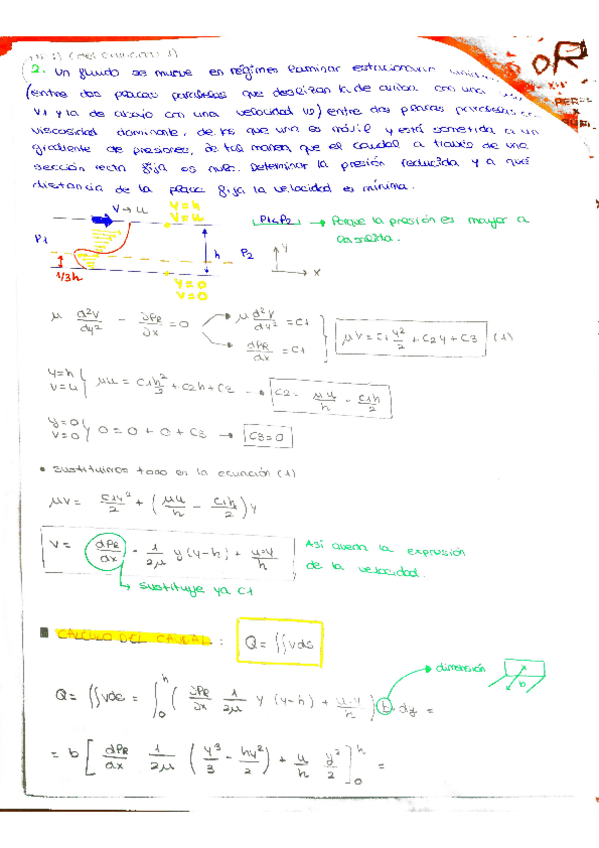 2. Un fluido se mueve en régimen laminar estacionario
(entre dos placas paralelas que deslizan la de arriba con una
V1 y la de abajo con una velocidad V2) entre dos placas paralelas
viscosidad dominante, de las que una es móvil y está sometida a un
gradiente de presiones, de tal manera que el caudal a través de una
sección recta fija es nulo. Determinar la presión reducida y a qué
distancia de la placa fija la velocidad es mínima.
OR
V→u
y=h
v=u
P1<P2 → Porque la presión es mayor a
la salida.
P1
h
P2
y
x
1/3h
y=0
v=0
μ d²v/dy² - ∂PR/∂x = 0
μ d²v/dy² = C1
dPR/dx = C1
μv = C1 y²/2 + C2y + C3 (1)
y=h
v=u
μu = C1h²/2 + C2h + C3 → C2 = μu/h - C1h/2
y=0
v=0
0 = 0 + 0 + C3 → C3=0
• Sustituimos todo en la ecuación (1)
μv = C1y²/2 + (μu/h - C1h/2) y
v = dPR/dx · 1/2μ y(y-h) + u·y/h
Así queda la expresión
de la velocidad.
→ sustituye ya C1
CÁLCULO DEL CAUDAL:
Q = ∫∫vds
→ dimensión
b
Q = ∫∫vds = ∫₀ʰ ( ∂PR/∂x 1/2μ y (y-h) + u·y/h ) b dy =
= b [ dPR/dx 1/2μ ( y³/3 - hy²/2 ) + u/h y²/2 ]₀ʰ =